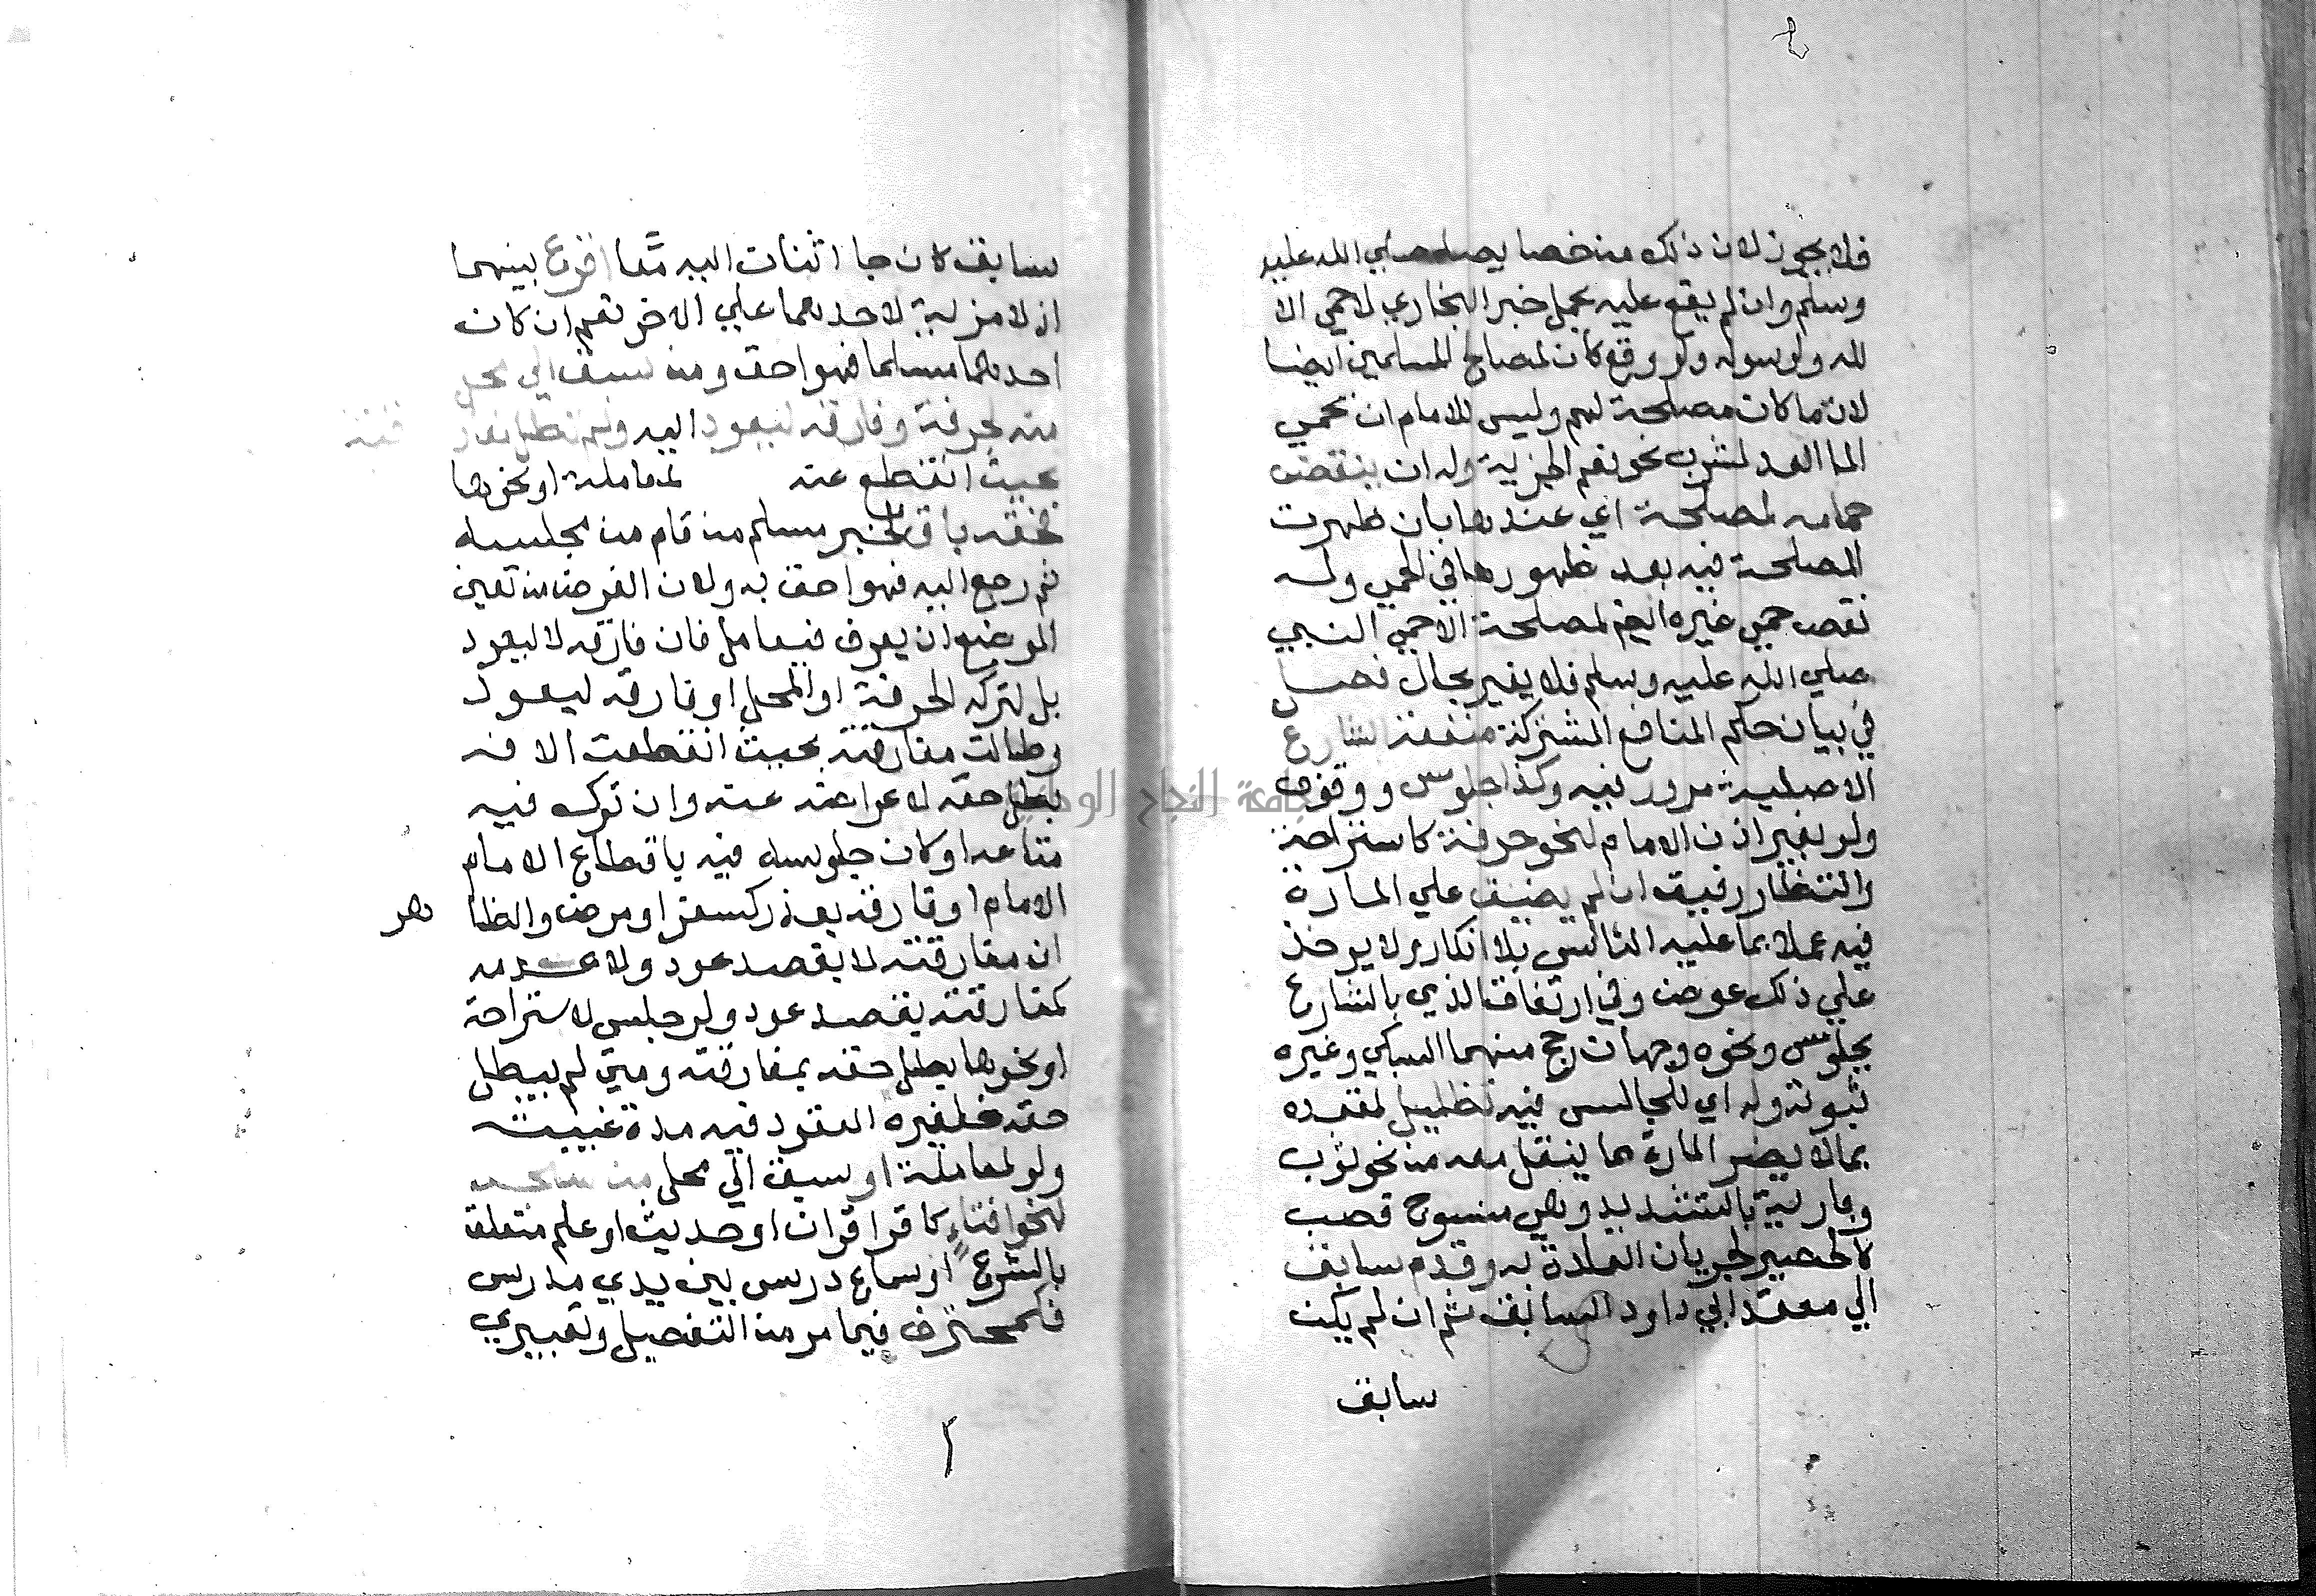 فلا يجوز لان ذلك من خصايصه صلي الله عليه
وسلم وان لم يقع عليه يحمل خبر البخاري لا حمي الا
لله ولرسوله ولو وقع كان لمصالح المسلمين ايضا
لان ما كان مصلحة لهم وليس للامام ان يحمي
الما العد لشرب نحو نعم الجزية وله ان ينقض
حماه لمصلحة اي عندها بان ظهرت
المصلحة فيه بعد ظهورها في الحمي وله
نقض حمي غيره ايضا لمصلحة الا حمي النبي
صلي الله عليه وسلم فلا يغير بحال فصل
في بيان حكم المنافع المشتركة منفعة الشارع
الاصلية مرور فيه وكذا جلوس ووقوف
ولو بغير اذن الامام لنحو حرفة كاستراحة
وانتظار رفيق ان لم يضيق علي المارة
فيه عملا بما عليه الناس بلا انكار ولا يوخذ
علي ذلك عوض وفي ارتفاق الذمي بالشارع
بجلوس ونحوه وجهان رجح منهما السبكي وغيره
ثبوته وله اي للجالس فيه تظليل لمقعده
بما لا يضر المارة مما ينقل معه من نحو ثوب
وبارية بالتشديد وهي منسوج قصب
كالحصير لجريان العادة به وقدم سابق
الي مقعد ابي داود السابق ثم ان لم يكن
سابق
سابق كان جا اثنان اليه معا اقرع بينهما
اذ لا مزية لاحدهما علي الاخر نعم ان كان
احدهما مسلما فهو احق ومن سبق الي محل
منه لحرفة وفارقه ليعود اليه ولم تطل مفار
قته
بحيث انقطع عنه لمعاملة او نحوها
فحقه باق لخبر مسلم من قام من مجلسه
ثم رجع اليه فهو احق به ولان الغرض من تعين
الموضع ان يعرف فيعامل فان فارقه لا ليعود
بل لتركه الحرفة او المحل او فارقه ليعود
وطالت مفارقته بحيث انقطعت الافه
بطل حقه لاعراضه عنه وان ترك فيه
متاعه او كان جلوسه فيه باقطاع الامام
الامام او فارقه بعذر كسفر او مرض والظا
هر
ان مفارقته لا بقصد عود ولا عدمه
كمفارقته بقصد عود ولو جلس لاستراحة
او نحوها بطل حقه بمفارقته ومتي لم يبطل
حقه فلغيره القعود فيه مدة غيبته
ولو لمعاملة او سبق الي محل من مسجد
لنحو افتاء كاقرا قران او حديث او علم متعلق
بالشرع او سماع درس بين يدي مدرس
فكمحترف فيما مر من التفصيل وتعبيري
جامعة النجاح الوطنية